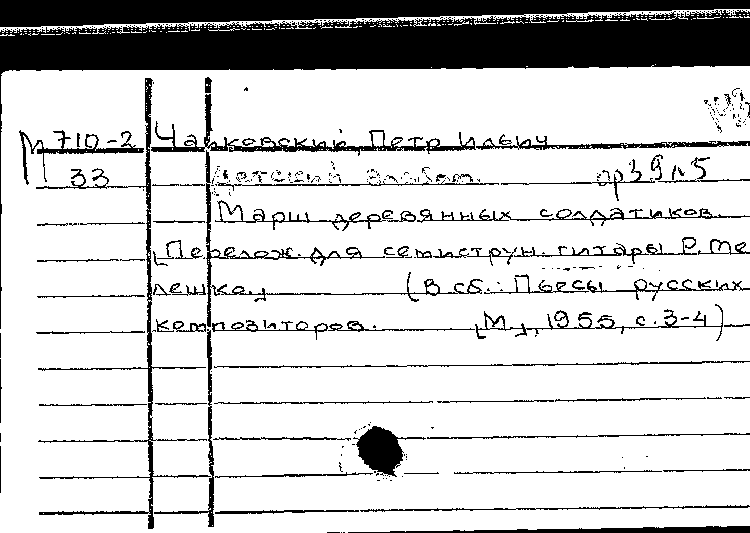 М 710-2 Чайковский, Петр Ильич
33 Детский альбом. op 39 n 5
Марш деревянных солдатиков.
[Перелож. для семиструн. гитары Р. Ме
лешко] (В сб.: Пьесы русских
композиторов. [М.], 1955, с. 3-4)